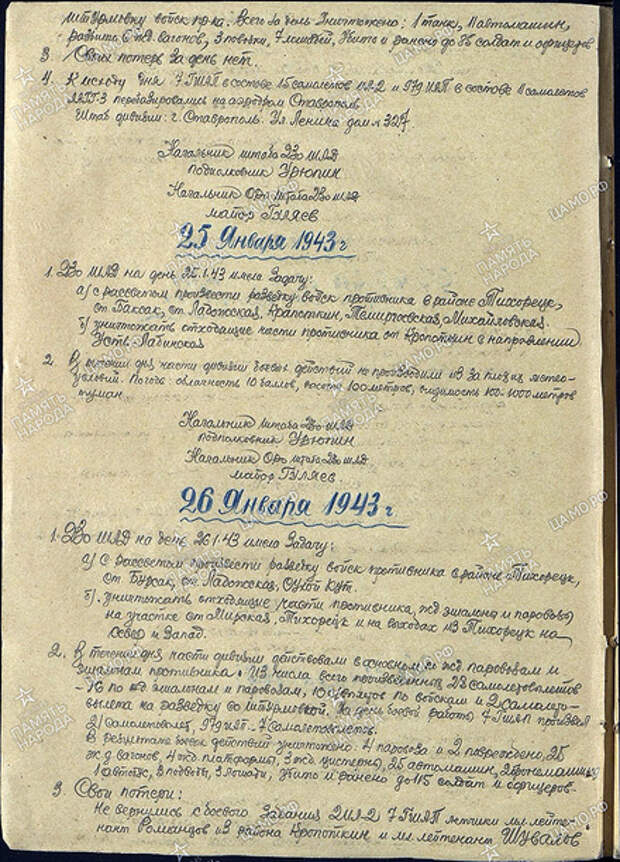 штурмовку войск пр-ка. Всего за день уничтожено: 1 танк, 11 автомашин,
разбито 6 жд. вагонов, 3 повозки, 7 лошадей, убито и ранено до 85 солдат и офицеров
3. Своих потерь за день нет.
4. К исходу дня 7 ГШАП в составе 15 самолетов ИЛ-2 и 979 ИАП в составе 11 самолетов
ЛАГГ-3 перебазировались на аэродром Ставрополь
Штаб дивизии: г. Ставрополь. Ул. Ленина дом № 327.
Начальник штаба 230 ШАД
подполковник Урюпин
Начальник Опо штаба 230 шад
майор Гуляев
25 Января 1943 г
1. 230 ШАД на день 25.1.43 имела задачу:
а) с рассветом произвести разведку войск противника в районе Тихорецк,
ст. Ладожская, Кропоткин, Темиргоевская, Михайловская.
б) уничтожать отходящие части противника от Кропоткин в направлении
Усть Лабинская
2. В течении дня части дивизии боевых действий не производили из за плохих метео-
условий. Погода: облачность 10 баллов, высота 100 метров, видимость 1000 метров
туман
Начальник штаба 230 шад
подполковник Урюпин
Начальник Опо штаба 230 шад
майор Гуляев.
26 Января 1943 г
1. 230 ШАД на день 26.1.43 имела задачу:
а) С рассветом произвести разведку войск противника в районе Тихорецк,
ст. Бурсак, ст. Ладожская,
б). уничтожать отходящие части противника, жд эшалоны и паровозы
на участке ст. Мирская, Тихорецк и на выходах из Тихорецк на
север и запад.
2. В течении дня части дивизии действовали в основном по жд. паровозам и
эшалонам противника. Из числа всего произведенных 28 самолетовылетов
- 16 по жд эшалонам и паровозам, 10 по войскам и 2 самолето-
вылета на разведку со штурмовкой. За день боевой работы 7 ГШАП произвел
21 самолетовылет, 979 ИАП - 7 самолетовылетов.
В результате боевых действий уничтожено: 4 паровоза и 2 повреждено, 25
ж.д вагонов, 4 жд. платформы, 3 жд. цистерны, 25 автомашин, 2 бронемашины
1 автобус, 3 подводы, 3 лошади, убито и ранено до 115 солдат и офицеров.
3. Свои потери:
Не вернулись с боевого задания 2 ИЛ-2 7 ГШАП летчики мл. лейте-
нант Романцов из района Кропоткин и мл лейтенант Шувалов
ПАМЯТЬ НАРОДА
ЦАМО.РФ